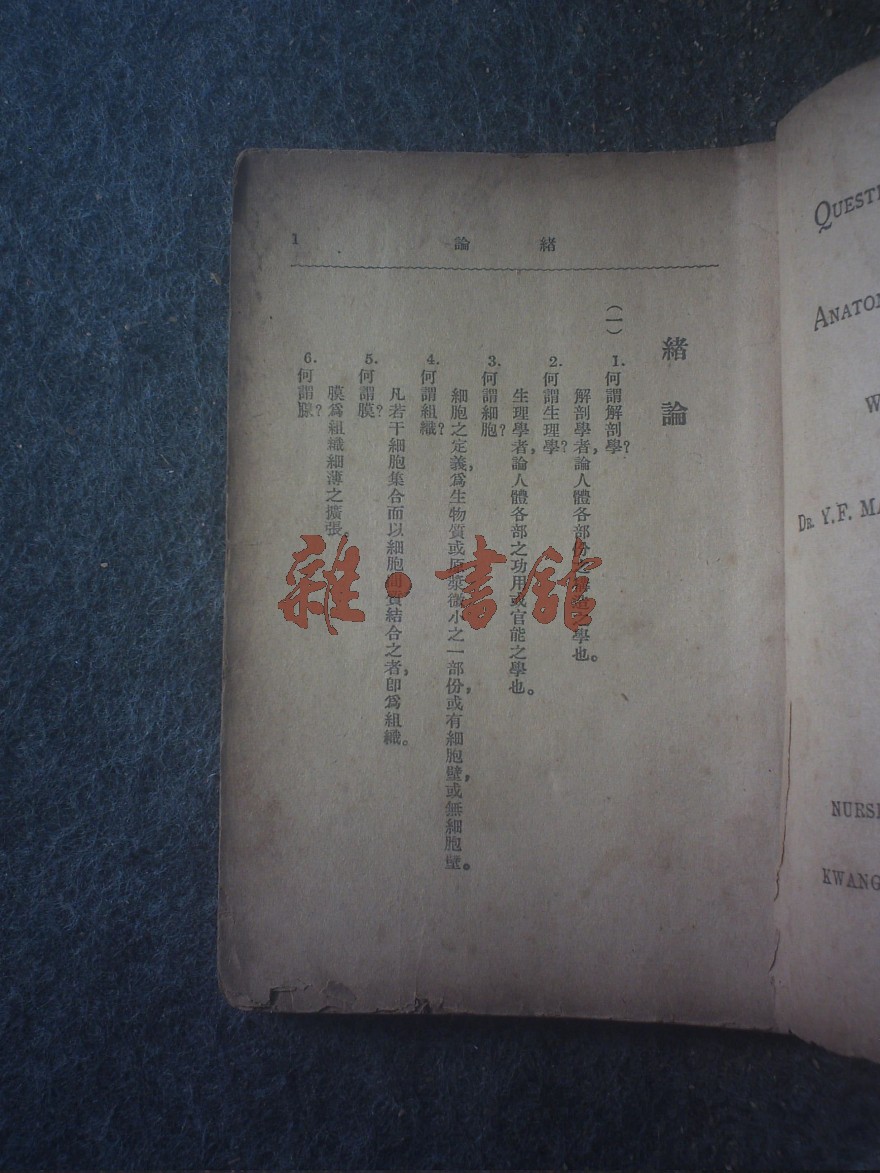 緒論
1
緒論
(一) 1. 何謂解剖學?
解剖學者,論人體各部份之構造之學也。
2. 何謂生理學?
生理學者,論人體各部之功用或官能之學也。
3. 何謂細胞?
細胞之定義,爲生物質或原漿微小之一部份,或有細胞壁,或無細胞壁。
4. 何謂組織?
凡若干細胞集合而以細胞間質結合之者,卽爲組織。
5. 何謂膜?
膜爲組織細薄之擴張。
6. 何謂腺?
雜·書館
QUESTI
ANATOM
W
DR. Y. F. MA
NURSE
KWANG